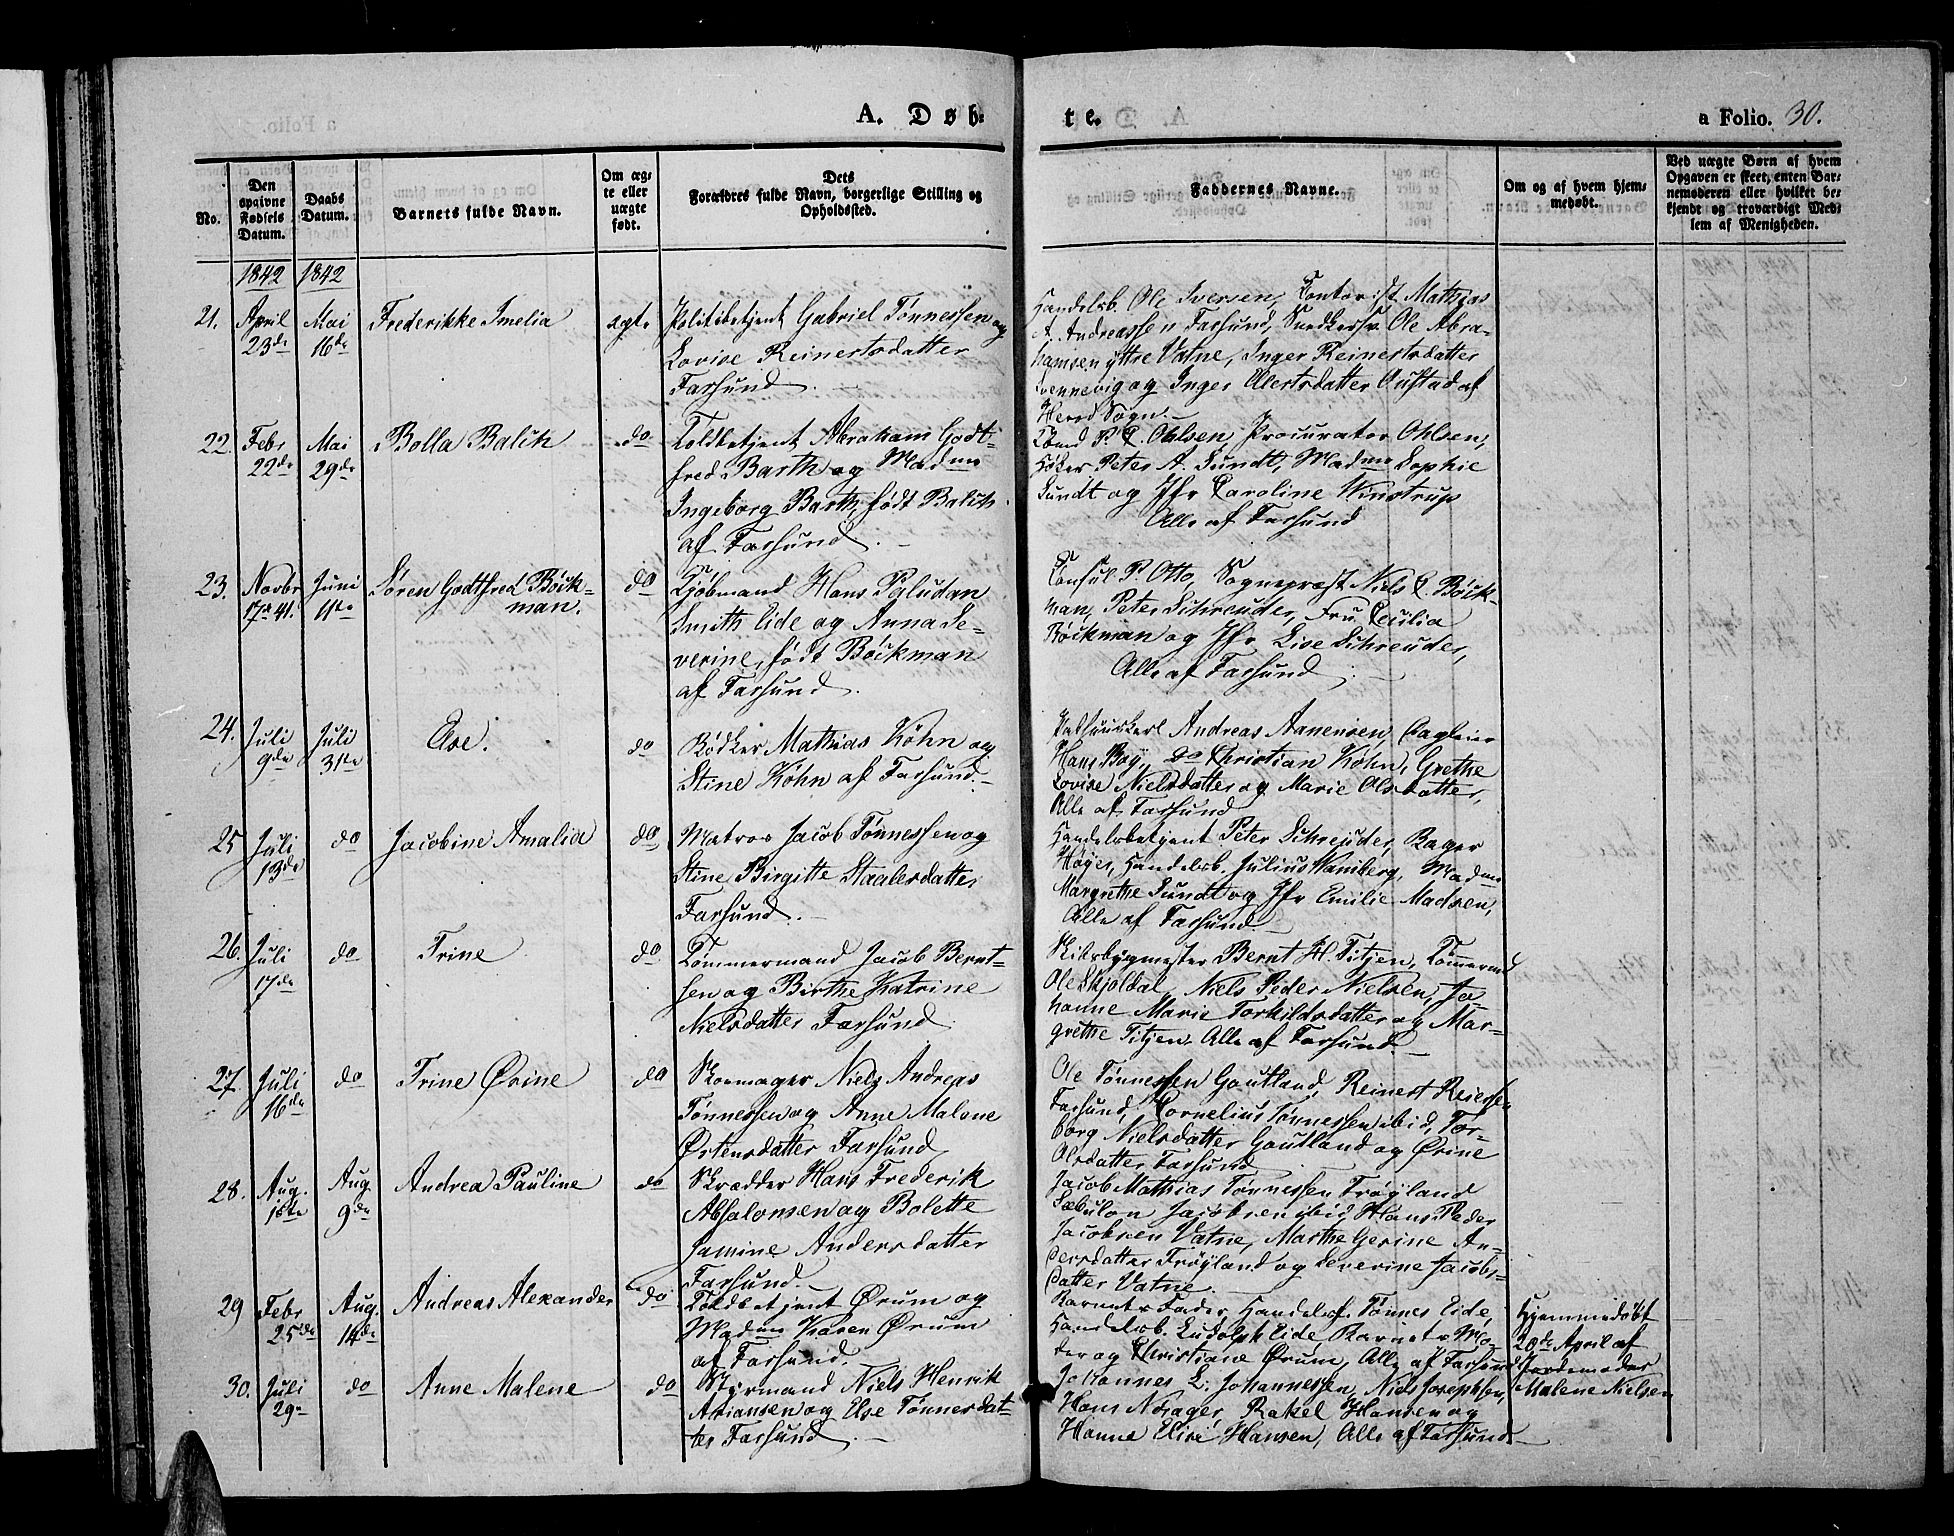 A. Døb-
te.
a Folio. 30.
No.
Den
opgivne
Fødsels
Datum.
Daabs
Datum.
Barnets fulde Navn.
Om æg-
te eller
uægte
født.
Dets
Forældres fulde Navn, borgerlige Stilling og
Opholdssted.
Faddernes Navne.
Om og af hvem hjem-
medøbt.
Ved uægte Børn af hvem
Opgaven er skeet, enten Bar-
nemoderen eller hvilket be-
kjendt og troværdigt Med-
lem af Menigheden.
1842 1842
21. April 23de Mai 16de Frederikke Imelia ægte
Politibetjent Gabriel Tønnessen og
Lovise Reinertsdatter
Farsund.
Handelsb. Ole Iversen, Contorist Mathias
A. Andreassen Farsund, Snedkersv. Ole Abra-
hamsen yttre Vatne, Inger Reinertsdatter
Svennevig og Inger Alertsdatter Oustad af
Herred Sogn.
22. Febr 22de Mai 29de Bolla Balich do
Toldbetjent Abraham Godt-
fred Barth og Madme
Ingeborg Barth, født Balich
af Farsund.
P. C. Ohlsen, Procurator Ohlsen,
Høker Peter A. Sundt, Madme Sophie
Sundt og Jfr Caroline Winstrup
Alle af Farsund
23. Novbr 17de 41. Juni 11te Søren Godtfred Böck-
man. do
Kjøbmand Hans Paludan
Smith Eide og Anna Se-
verine, født Böckman
af Farsund.
Consul P. Otto, Sognepræst Niels C Böck-
man, Peter Schreuder, Fru Cecilia
Böckman og Jfr Lise Schreuder,
Alle af Farsund.
24. Juli 9de Juli 31te Else. do
Bødker Mathias Köhn og
Stine Köhn af Farsund.
Andreas Aanensen Dagleier
Hans Boy, do Christian Köhn, Grethe
Lovise Nielsdatter og Marie Olsdatter,
Alle af Farsund
25 Juli 13de do Jacobine Amalia do
Matros Jacob Tønnessen og
Stine Birgitte Staalesdatter
Farsund.
Handelsbetjent Peter Schreuder, Bager
Høyer, Handelsb. Julius Wamberg, Madme
Margrethe Sundt og Jfr Emilie Madsen,
Alle af Farsund
26. Juli 17de do Trine do
Tømmermand Jacob Bernt-
sen og Birthe Katrine
Nielsdatter Farsund
Skibsbygmester Bernt H. Titjen, Tømmermd
Ole Skjoldal, Niels Peder Nielsen, Jo-
hanne Marie Torkildsdatter og Mar-
grethe Titjen. Alle af Farsund.
27. Juli 16de do Trine Ørine do
Skomager Niels Andreas
Tønnessen og Anne Malene
Østensdatter Farsund
Ole Tønnessen Goutland, Reinert Reiersen
Farsund, Cornelius Tønnessen ibid, Tor-
borg Nielsdatter Goutland og Ørine
Olsdatter Farsund
28. Aug. 1ste Aug 9de Andrea Pauline do
Skrædder Hans Frederik
Absalonsen og Bolette
Jamine Andersdatter
Farsund.
Jacob Mathias Tønnessen Frøyland
Sæbulon Jacobsen ibid, Hans Peder
Jacobsen Vatne, Marthe Gerine An-
dersdatter Frøyland og Severine Jacobs-
datter Vatne.
29 Febr 25de Aug. 14de Andreas Alexander do
Toldbetjent Ørum og
Madme Karen Ørum
af Farsund.
Barnets Fader, Handelsf. Tønnes Eide,
Handelsb. Ludolph Eide, Barnets Mo-
der og Christiane Ørum, Alle af Farsund
Hjemmedøbt
20de April af
Jordemoder
Malene Nielsen
30. Juli 29de do Anne Malene do
Styrmand Niels Henrik
Ariansen og Else Tønnesdat-
ter Farsund.
Johannes L. Johannessen, Niels Josephsen,
Hans Norager, Rakel Hansen og
Hanne Elise Hansen, Alle af Farsund